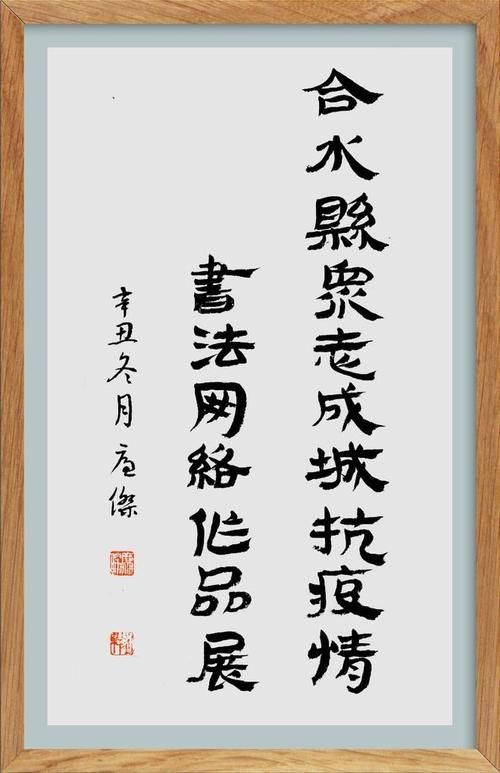 合水縣眾志成城抗疫情
書法网絡作品展
辛丑冬月傑